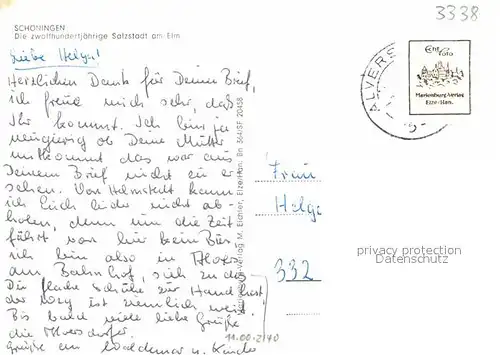 3338
SCHÖNINGEN
Die zwölfhundertjährige Salzstadt am Elm
Liebe Helga!
Herzlichen Dank für Deinen Brief,
ich freue mich sehr, daß
Ihr kommt. Ich bin ja
neugierig ob Deine Mutter
mitkommt das war aus
Deinem Brief nicht zu er
sehen. Von Helmstedt kann
ich Euch leider nicht ab-
holen, denn um die Zeit
fährt von hier kein Bus
ich bin also in
am Bahnhof,
Du flache Schuhe zur Hand hast
der Weg ist ziemlich weit.
Bis bald viele liebe Grüße
die
Grüße von Waldemar u. Kinder
Echt Foto
Marienburg-Verlag
Elze-Han.
ALVERS
Frau
Helga
332
privacy protection
Datenschutz
11.00-21.40